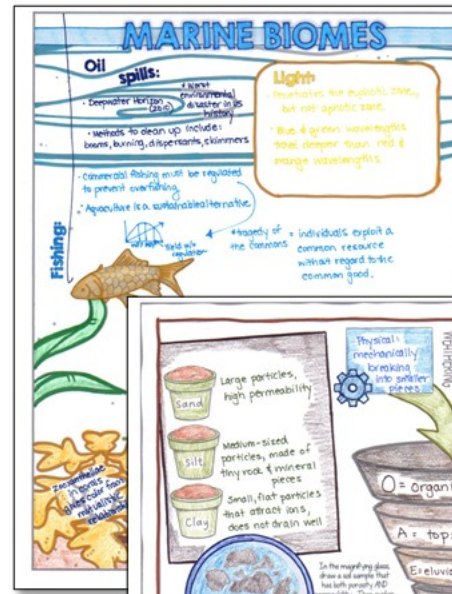 MARINE BIOMES
Oil
spills:
• Deepwater Horizon
(2010)
* Worst
environmental
disaster in US
history
• Methods to clean up include:
booms, burning, dispersants, skimmers
Light:
• Penetrates the euphotic zone,
but not aphotic zone.
• Blue & green wavelengths
travel deeper than red &
orange wavelengths.
Fishing:
• Commercial fishing must be regulated
to prevent overfishing
• Aquaculture is a sustainable alternative
yield w/o
regulation
* tragedy of
the commons
= individuals exploit a
common resource
without regard to the
common good.
Zooxanthellae
in corals
gives color from
mutualistic
relationship
Sand
Large particles,
high permeability
Silt
Medium-sized
particles, made of
tiny rock & mineral
pieces
Clay
Small, flat particles
that attract ions,
does not drain well
Physical:
mechanically
breaking
into smaller
pieces
WEATHERING
O = organi
A = tops
E = eluvia
In the magnifying glass,
draw a soil sample that
has both porosity AND